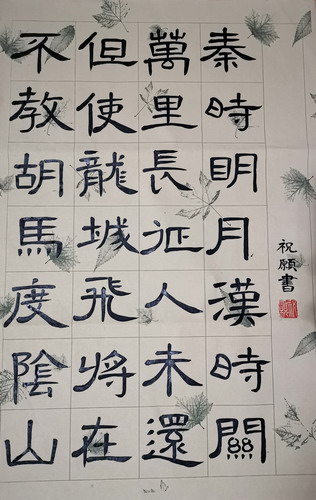 秦時明月漢時關
萬里長征人未還
但使龍城飛將在
不教胡馬度陰山
祝願書